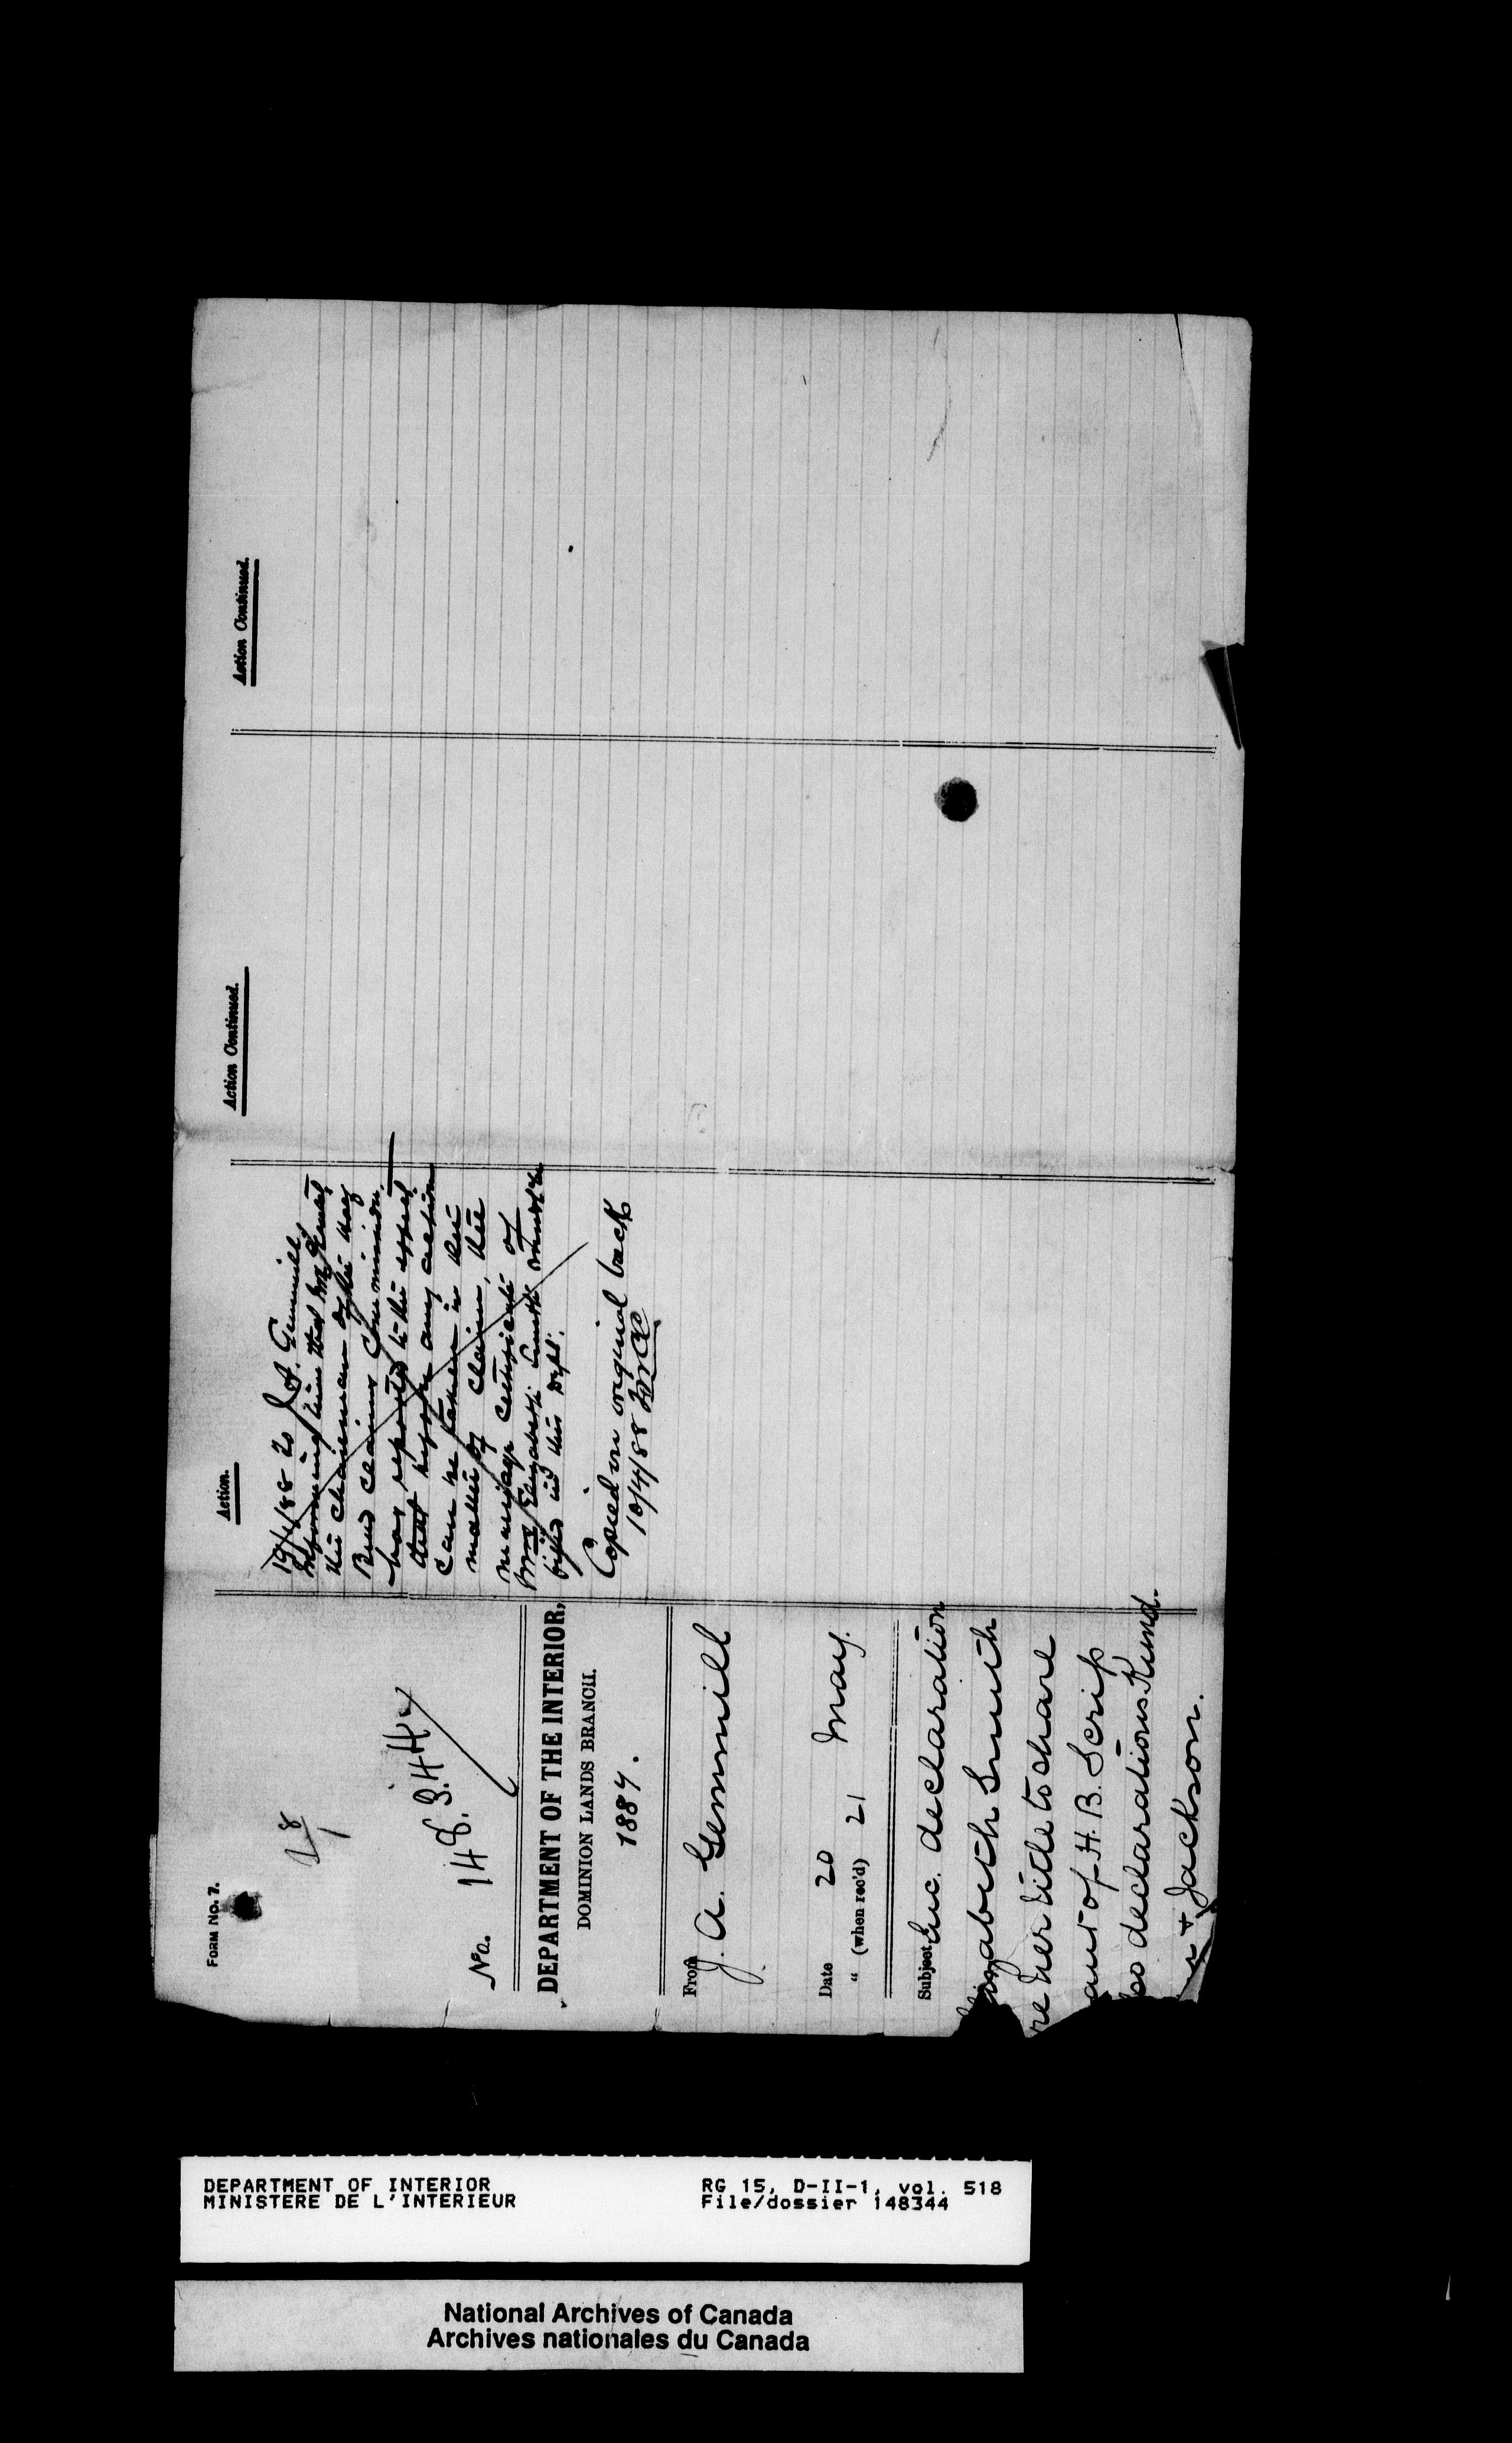 FORM No. 7.
No. 148.344
DEPARTMENT OF THE INTERIOR,
DOMINION LANDS BRANCH.
1887.
From J. A. Gemmill
Date 20 May.
" (when rec'd) 21
Subject, Enc. declaration
Elizabeth Smith
re her title to share
of H. B. Scrip
declarations. Kind.
+ Jackson.
Action.
19/4/88 To J. A. Gemmill
Informing him that Mr
the chairman of the
claims Commission,
has reported to the effect
that before any action
can be taken in the
matter of claim, the
marriage certificate of
Mrs Elizabeth Smith must be
filed in this Dept.
Copied on original back
10/4/88
Action Continued.
Action Continued.
DEPARTMENT OF INTERIOR
MINISTERE DE L'INTERIEUR
RG 15, D-II-1, vol. 518
File/dossier 148344
National Archives of Canada
Archives nationales du Canada